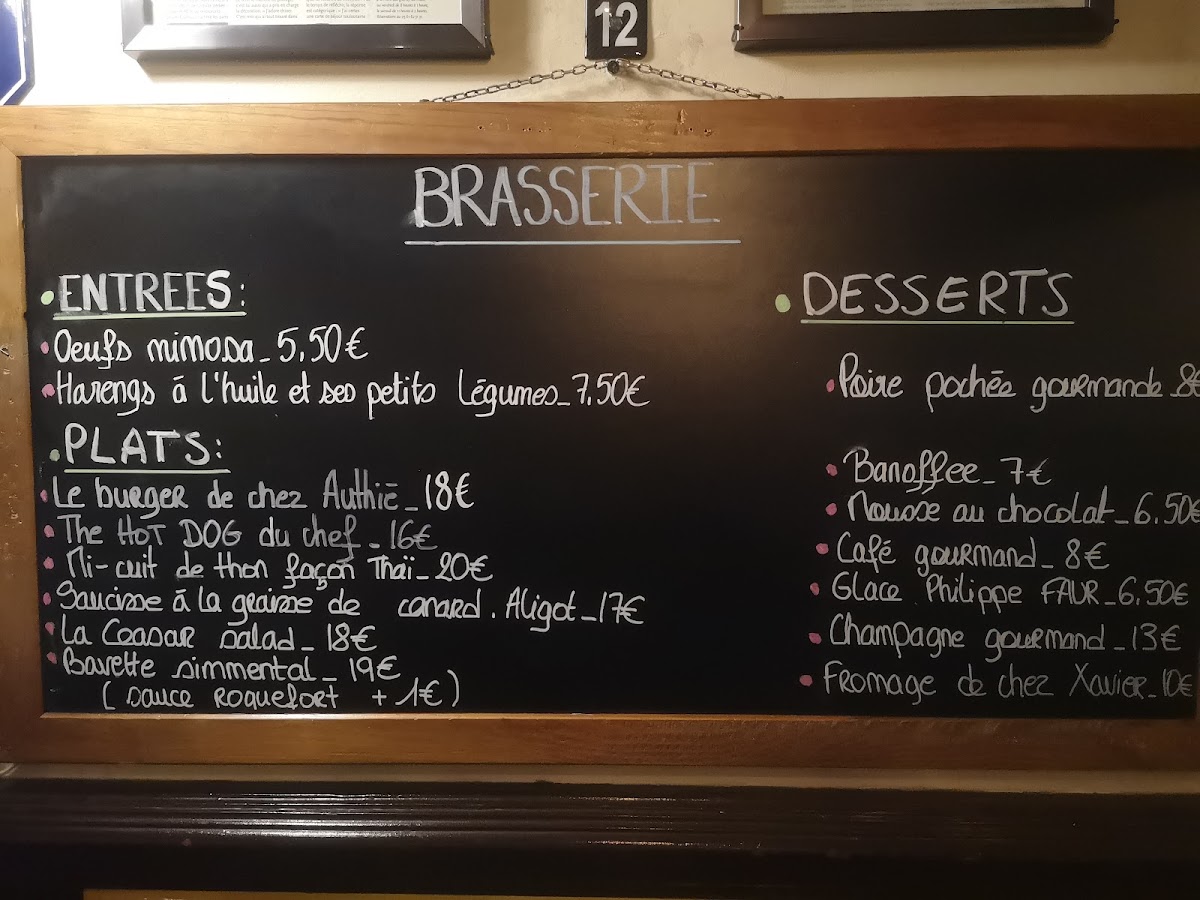 12
BRASSERIE
ENTREES:
Oeufs mimosa_5,50€
Harengs á l'huile et ses petits légumes_7,50€
PLATS:
Le burger de chez Authié_18€
The HOT DOG du chef_16€
Mi-cuit de thon façon Thaï_20€
Saucisse á la graisse de canard. Aligot_17€
La Ceasar salad_18€
Bavette simmental_19€
(sauce ROQUEFORT +1€)
DESSERTS
Poire pochée gourmande_8€
Banoffee_7€
Mousse au chocolat_6,50€
Café gourmand_8€
Glace Philippe FAUR_6,50€
Champagne gourmand_13€
Fromage de chez Xavier_10€